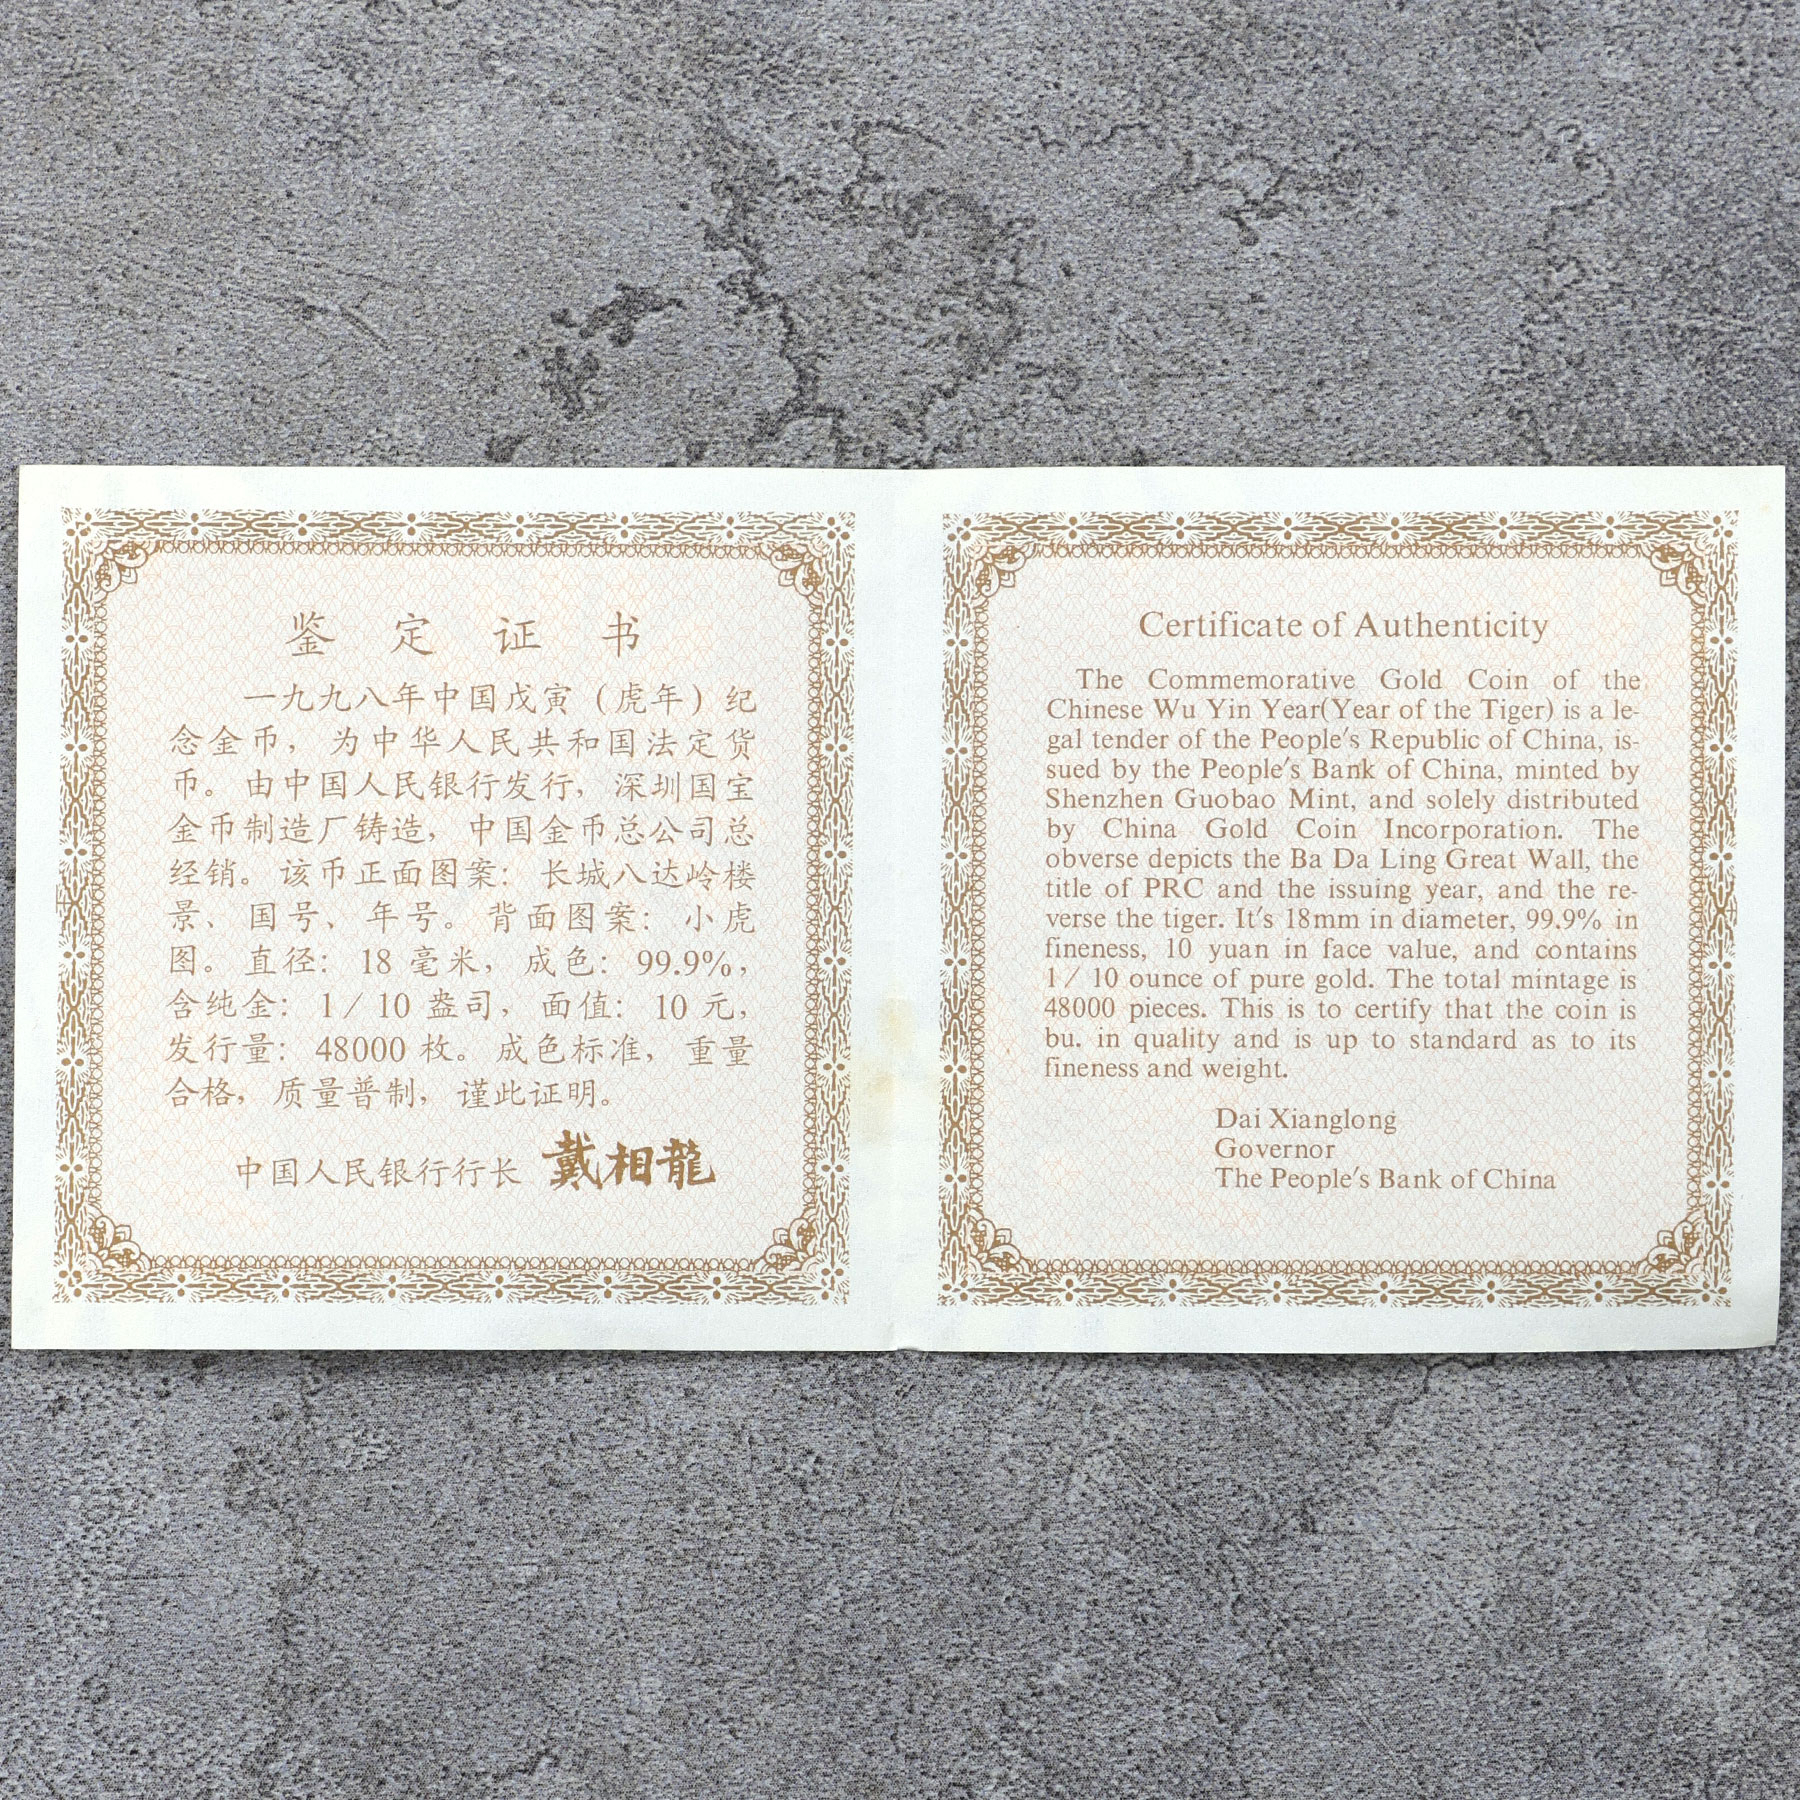 鉴定证书
一九九八年中国戊寅（虎年）纪
念金币，为中华人民共和国法定货
币。由中国人民银行发行，深圳国宝
金币制造厂铸造，中国金币总公司总
经销。该币正面图案：长城八达岭楼
景、国号、年号。背面图案：小虎
图。直径：18毫米，成色：99.9%，
含纯金：1/10盎司，面值：10元，
发行量：48000枚。成色标准，重量
合格，质量普制，谨此证明。
中国人民银行行长 戴相龍
Certificate of Authenticity
The Commemorative Gold Coin of the
Chinese Wu Yin Year(Year of the Tiger) is a le-
gal tender of the People's Republic of China, is-
sued by the People's Bank of China, minted by
Shenzhen Guobao Mint, and solely distributed
by China Gold Coin Incorporation. The
obverse depicts the Ba Da Ling Great Wall, the
title of PRC and the issuing year, and the re-
verse the tiger. It's 18mm in diameter, 99.9% in
fineness, 10 yuan in face value, and contains
1/10 ounce of pure gold. The total mintage is
48000 pieces. This is to certify that the coin is
bu. in quality and is up to standard as to its
fineness and weight.
Dai Xianglong
Governor
The People's Bank of China